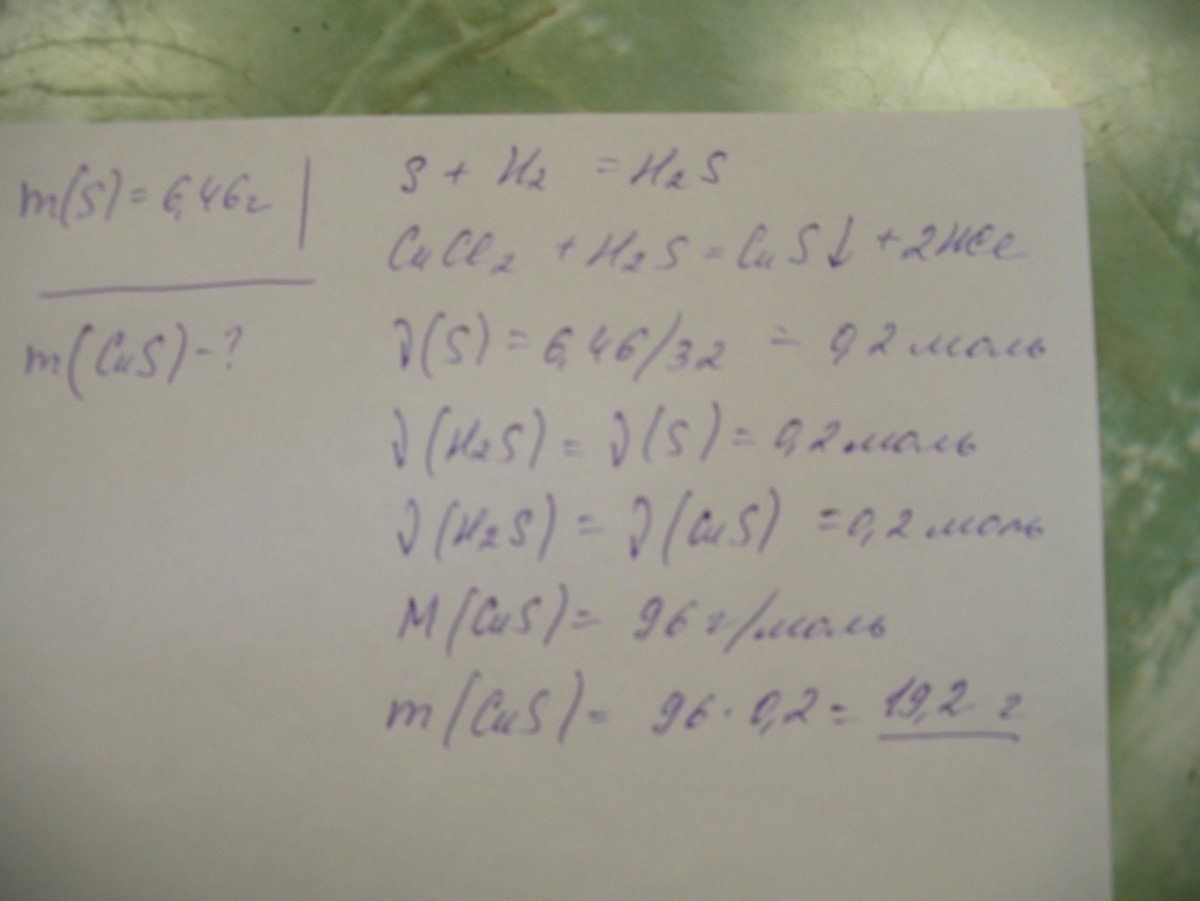 m(S) = 6,46г
m(CuS) - ?
S + H₂ = H₂S
CuCl₂ + H₂S = CuS↓ + 2HCl
ν(S) = 6,46/32 = 0,2 моль
ν(H₂S) = ν(S) = 0,2 моль
ν(H₂S) = ν(CuS) = 0,2 моль
M(CuS) = 96 г/моль
m(CuS) = 96 · 0,2 = 19,2 г